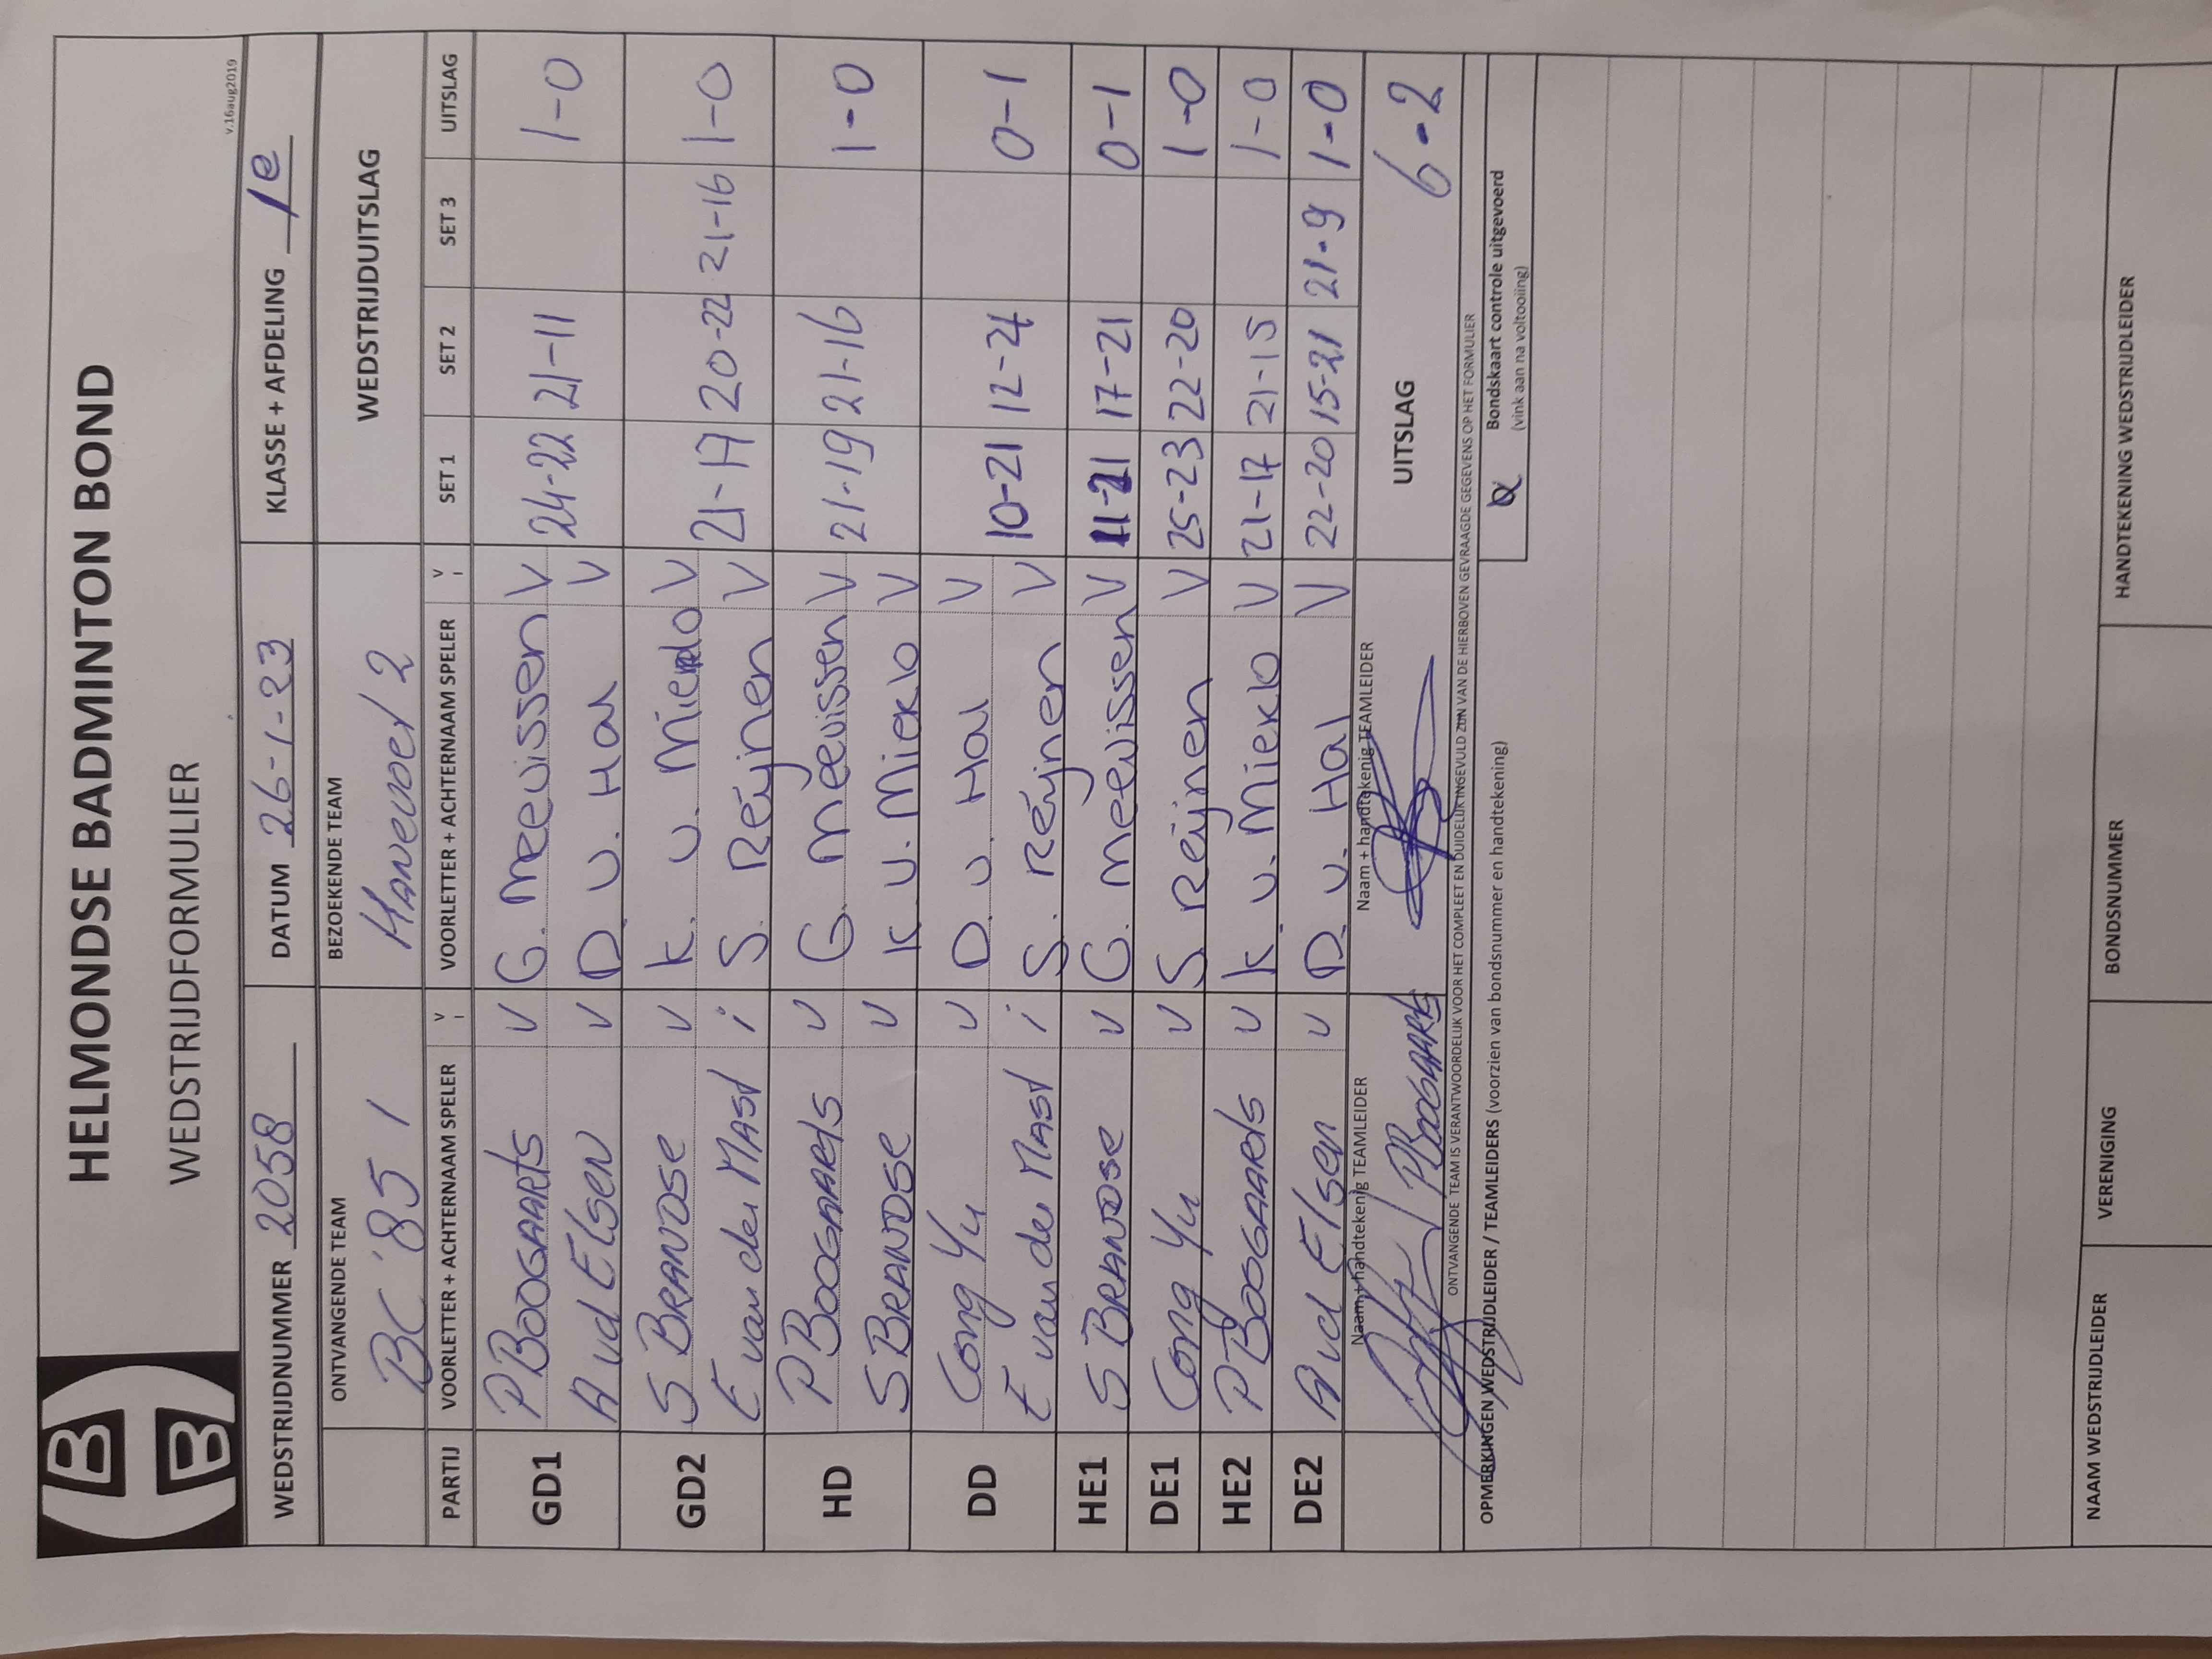 HELMONDSE BADMINTON BOND
WEDSTRIJDFORMULIER
v.16aug2019
WEDSTRIJDNUMMER 2058 DATUM 26-1-23 KLASSE + AFDELING 1e
ONTVANGENDE TEAM BEZOEKENDE TEAM WEDSTRIJDUITSLAG
BC '85 1 Hanevoet 2
PARTIJ VOORLETTER + ACHTERNAAM SPELER V i VOORLETTER + ACHTERNAAM SPELER V i SET 1 SET 2 SET 3 UITSLAG
GD1 P BOOGAARTS V G. Meeuissen V 24-22 21-11 1-0
A vd Elsen V D. v. Hal V
GD2 S BRANDSE V K. v. Mierlo V 21-17 20-22 21-16 1-0
E van der Mast i S. Reijnen V
HD P BOOGAARTS V G. Meeuissen V 21-19 21-16 1-0
S BRANDSE V K. v. Mierlo V
DD Cong Yu V D. v. Hal V 10-21 12-21 0-1
E van der Mast i S. Reijnen V
HE1 S BRANDSE V G. Meeuissen V 11-21 17-21 0-1
DE1 Cong Yu V S. Reijnen V 25-23 22-20 1-0
HE2 P BOOGAARTS V K. v. Mierlo V 21-17 21-15 1-0
DE2 A vd Elsen V D. v. Hal V 22-20 15-21 21-9 1-0
Naam + handtekenig TEAMLEIDER Naam + handtekenig TEAMLEIDER UITSLAG 6-2
P BOOGAARTS
ONTVANGENDE TEAM IS VERANTWOORDELIJK VOOR HET COMPLEET EN DUIDELIJK INGEVULD ZIJN VAN DE HIERBOVEN GEVRAAGDE GEGEVENS OP HET FORMULIER
OPMERKINGEN WEDSTRIJDLEIDER / TEAMLEIDERS (voorzien van bondsnummer en handtekening)
Bondskaart controle uitgevoerd
(vink aan na voltooiing)
NAAM WEDSTRIJDLEIDER VERENIGING BONDSNUMMER HANDTEKENING WEDSTRIJDLEIDER